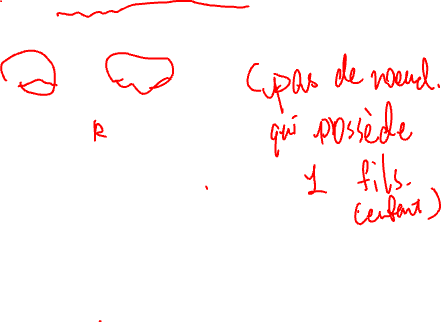 (pas de noeud.
R qui possède
1 fils.
(enfant)